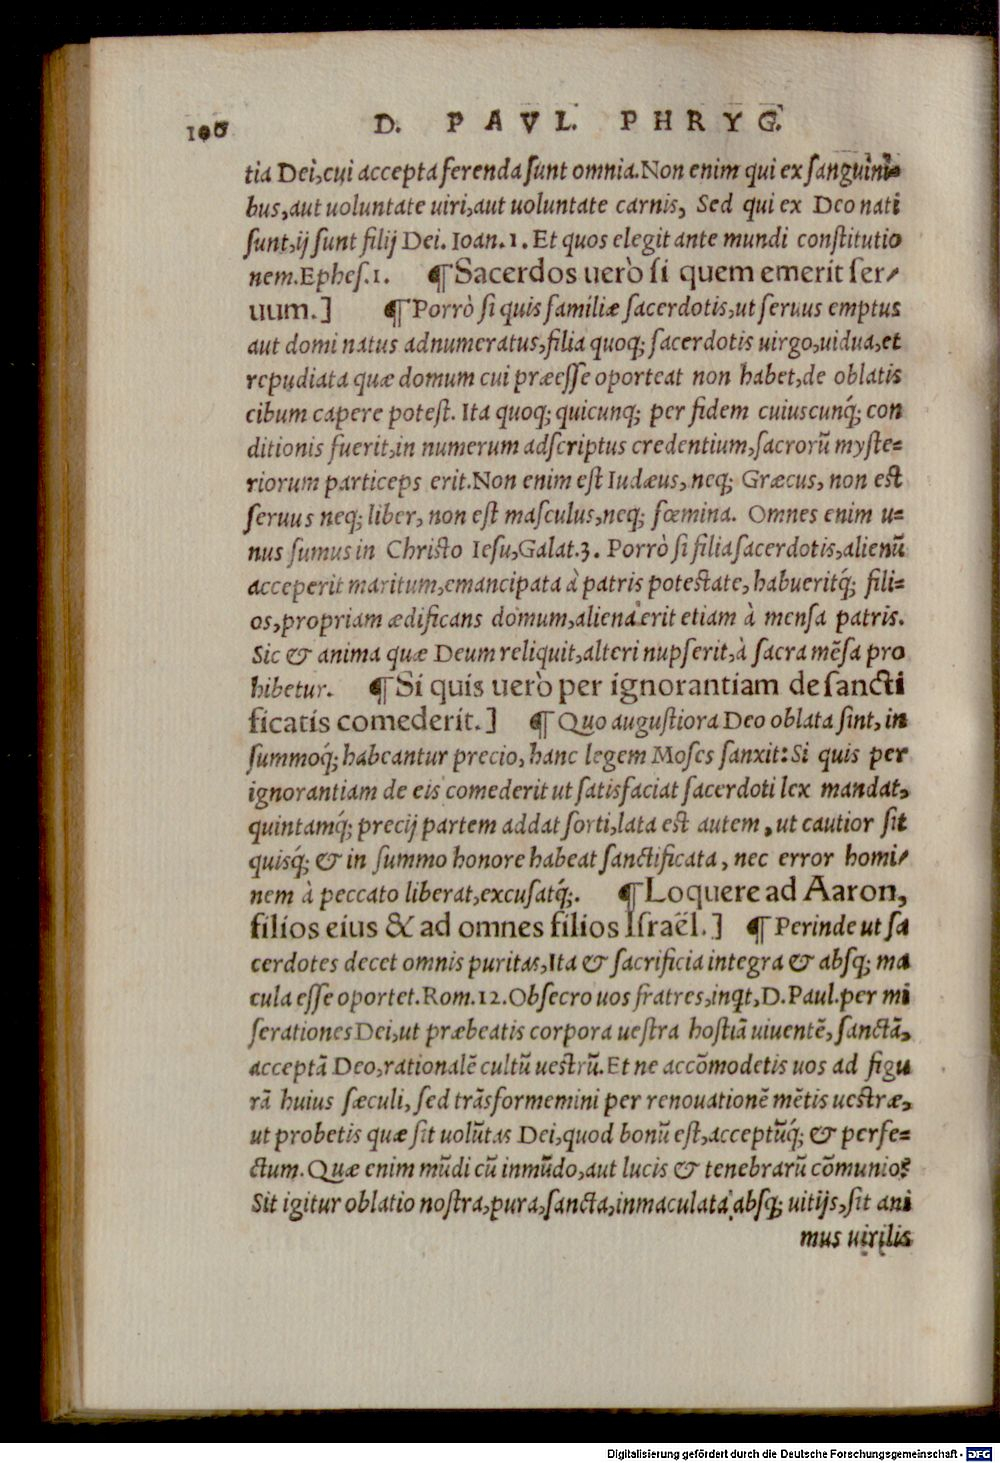 106 D. PAVL. PHRYG.
tia Dei, cui accepta ferenda ſunt omnia. Non enim qui ex ſanguini⸗
bus, aut uoluntate uiri, aut uoluntate carnis, Sed qui ex Deo nati
ſunt, ij ſunt filij Dei. Ioan. 1. Et quos elegit ante mundi conſtitutio
nem. Epheſ. 1. ¶ Sacerdos uerò ſi quem emerit ſer/
uum.] ¶ Porrò ſi quis familiæ ſacerdotis, ut ſeruus emptus
aut domi natus adnumeratus, filia quoq; ſacerdotis uirgo, uidua, et
repudiata quæ domum cui præeſſe oporteat non habet, de oblatis
cibum capere poteſt. Ita quoq; quicunq; per fidem cuiuscunq́; con
ditionis fuerit, in numerum adſcriptus credentium, ſacrorũ myſte⸗
riorum particeps erit. Non enim eſt Iudæus, neq; Græcus, non eſt
ſeruus neq; liber, non eſt maſculus, neq; fœmina. Omnes enim u⸗
nus ſumus in Chriſto Ieſu, Galat. 3. Porrò ſi filia ſacerdotis, alienũ
acceperit maritum, emancipata à patris poteſtate, habueritq́; fili⸗
os, propriam ædificans domum, aliena erit etiam à menſa patris.
Sic & anima quæ Deum reliquit, alteri nupſerit, à ſacra mẽſa pro
hibetur. ¶ Si quis uerò per ignorantiam de ſancti
ficatis comederit.] ¶ Quo auguſtiora Deo oblata ſint, in
ſummoq́; habeantur precio, hanc legem Moſes ſanxit: Si quis per
ignorantiam de eis comederit ut ſatisfaciat ſacerdoti lex mandat,
quintamq́; precij partem addat ſorti, lata eſt autem, ut cautior ſit
quisq́; & in ſummo honore habeat ſanctificata, nec error homi/
nem à peccato liberat, excuſatq́;. ¶ Loquere ad Aaron,
filios eius & ad omnes filios Iſraël.] ¶ Perinde ut ſa
cerdotes decet omnis puritas, Ita & ſacrificia integra & absq; ma
cula eſſe oportet. Rom. 12. Obſecro uos fratres, inqt, D. Paul. per mi
ſerationes Dei, ut præbeatis corpora ueſtra hoſtiã uiuentẽ, ſanctã,
acceptã Deo, rationalẽ cultũ ueſtrũ. Et ne accõmodetis uos ad figu
rã huius ſæculi, ſed trãsformemini per renouationẽ mẽtis ueſtræ,
ut probetis quæ ſit uolũtas Dei, quod bonũ eſt, acceptũq́; & perfe⸗
ctum. Quæ enim mũdi cũ inmũdo, aut lucis & tenebrarũ cõmunio?
Sit igitur oblatio noſtra, pura, ſancta, inmaculata absq; uitijs, ſit ani
mus uirilis
Digitalisierung gefördert durch die Deutsche Forschungsgemeinschaft - DFG